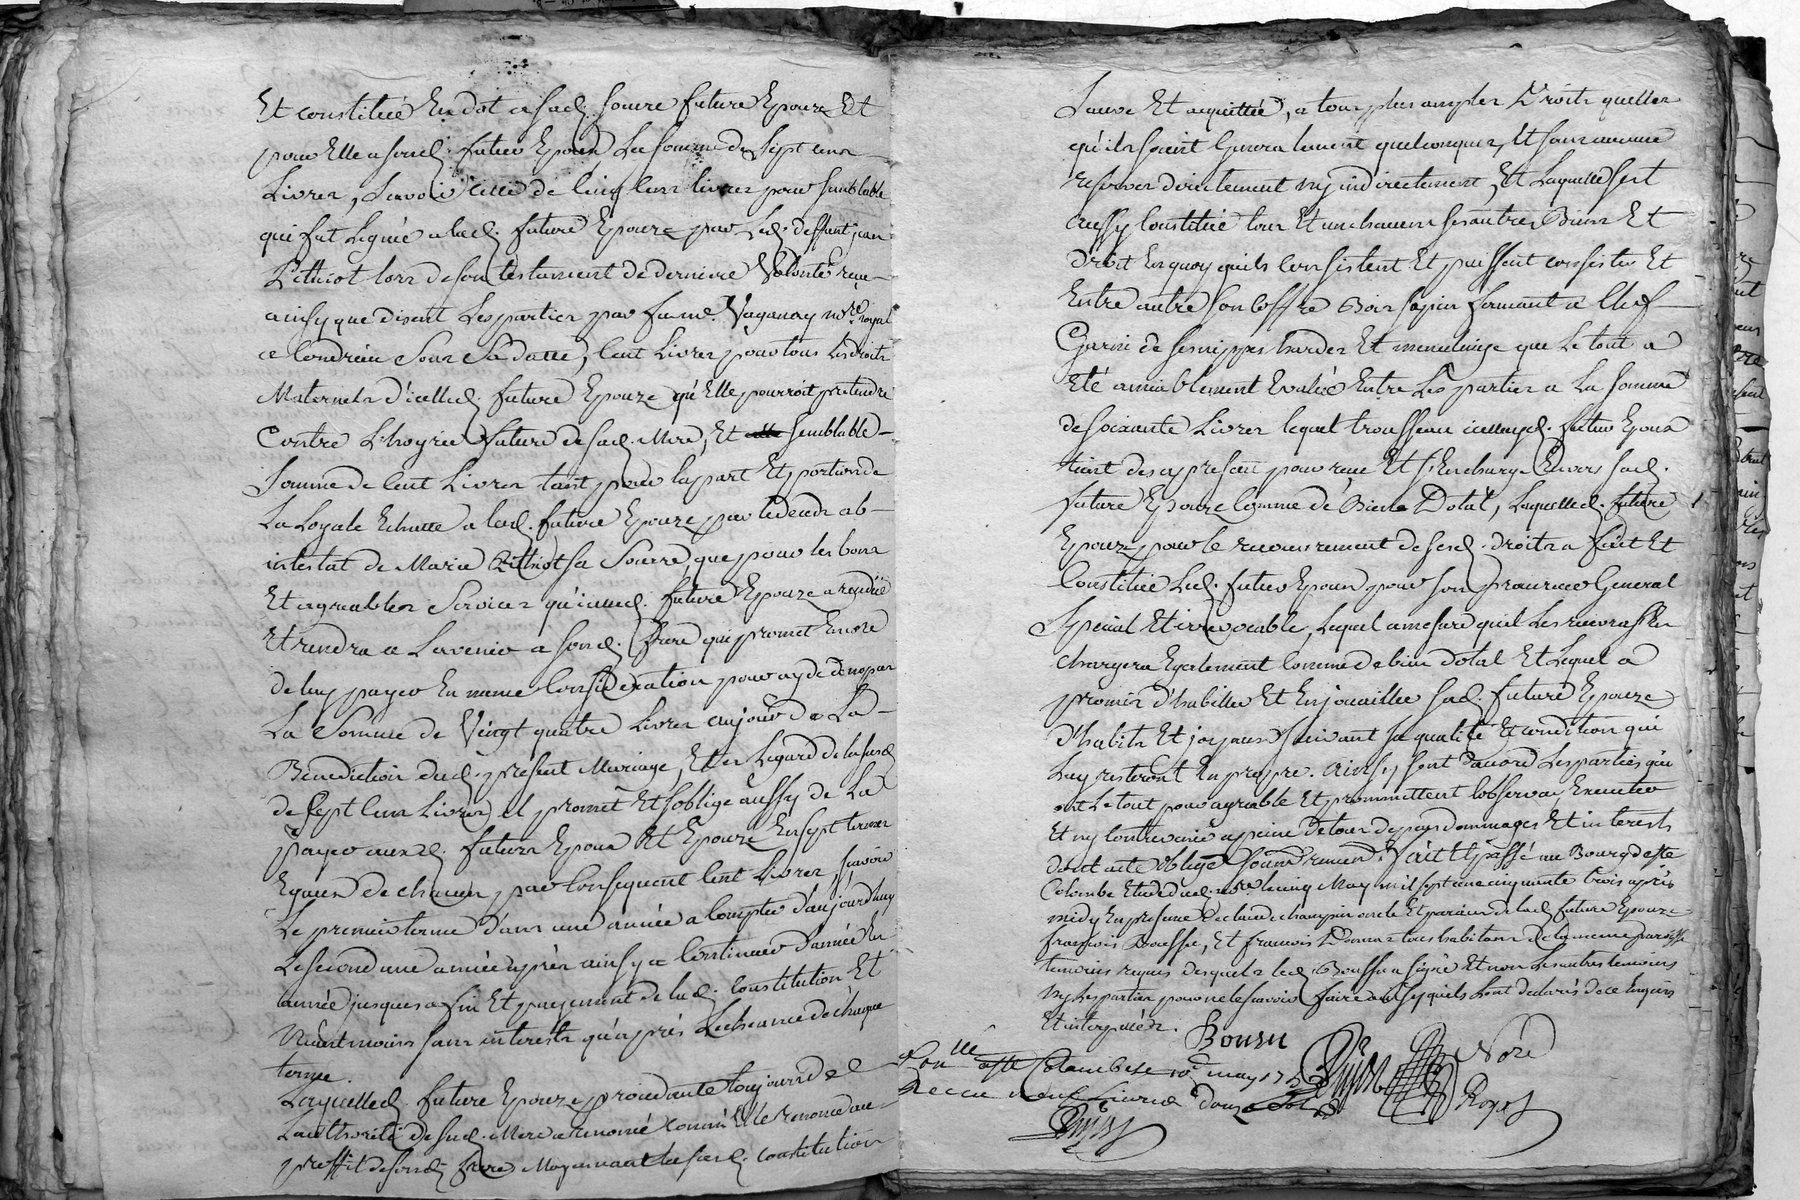 Et constitué En dot a sad. soeure future Epouze Et
pour Elle a sond. futur Epoux La somme de sept cens
Livres, Scavoir celle de Cinq Cens livres pour semblable
qui fut Leguée a lad. future Epouze par Led. deffunt jean
Pithiot lors de son testament de derniere Volonté receu
ainsy que disent Les parties par fu me. Vaganay nore. royal
a Condrieu Sous Sa datte, Cent Livres pour tous Les droits
Maternels d'icelled. future Epouze qu'Elle pourroit pretendre
Contre L'hoyrie future de sad. Mere, Et semblable
Somme de Cent Livres tant pour la part Et portion de
La Loyale Echutte a lad. future Epouze par le deceds ab
intestat de Marie Pithiot sa Soeure, que pour les bons
Et agreables Services qu'icelled. future Epouze a rendüe
Et rendra a L'avenir a sond. frere qui promet Encore
de luy payer En meme Consideration pour ayde de nopces
La Somme de Vingt quatre Livres au jour de La
Benediction dud. present Mariage, Et a L'egard de la susd.
de sept Cens Livres, il promet Et s'oblige aussy de La
payer auxd. futurs Epoux Et Epouze En sept termes
Egaux de chacun, par Consequent Cent Livres, scavoir
Le premier terme d'ans une année a Compter d'aujourd'huy
Le second une année après ainsy a Continuer d'année En
année jusques a fin Et payement de lad. Constitution Et
Neantmoins sans interests qu'après L'echeance de chaque
terme.
Laquelled. future Epouze procedante toujours de
L'authorité de sad. Mere a renoncé comm'Elle renonce au
proffit de sond. frere Moyennant la susd. Constitution
Sauve Et acquittée, a tous plus amples Droits quelles
qu'ils soient Generalement quelconques, Et sans aucune
reserver directement ny indirectement, Et Laquelle s'est
aussy Constituée tous Et un chacuns ses autres Biens Et
droit En quoy qu'ils Consistent Et puissent consister Et
Entre autre son Coffre Bois sapin fermant a Clef
Garni de ses nippes hardes Et menu linge que Le tout a
Eté amiablement Evalué Entre Les parties a La somme
de soixante Livres lequel trousseau icelluyd. futur Epoux
tient des a present pour receu Et s'En charge Envers sad.
future Epouze Comme de Biens Dotal, Laquelled. future
Epouze pour le recouvrement de sesd. droits a fait Et
Constitué Led. futur Epoux pour son procureur General
Special Et irrevocable, Lequel a mesure qu'il Les recevra s'En
chargera Egalement Comme de bien dotal Et Lequel a
promis d'habiller Et Enjouailler sad. future Epouze
d'habits Et joyaux suivant sa qualité Et condition qui
Luy resteront En propre. Ainsy sont d'accord Les parties qui
ont Le tout pour agreable Et promettent L'observer, Executer
Et ny Contrevenir a peine De tous depens dommages Et interests
dont acte oblige soumd renond. Fait Et passé au Bourg de ste
Colombe Etude dud. nore. le cinq May mil sept cens cinquante trois après
midy En presence de claude champin oncle Et parrain de lad. future Epouze
françois Boussu, Et françois tous habitans de la meme paroisse
temoins requis desquels led. Boussu a signé Et non Les autres temoins
ny Les parties pour ne le scavoir faire ainsy qu'ils L'ont declarés de ce Enquis
Et interpellés.
Boussu
Con.lle a ste Colombe le 10e. may
Receu neuf Livres douze sols